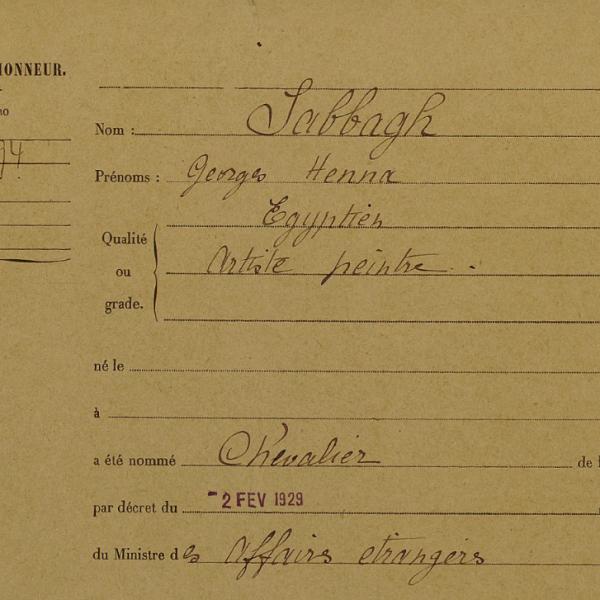 HONNEUR.
Nom : Sabbagh
Prénoms : Georges Henna
Egyptien
Qualité
Artiste peintre.
ou
grade.
né le
à
a été nommé Chevalier de
par décret du -2 FEV 1929
du Ministre des Affairs etrangers